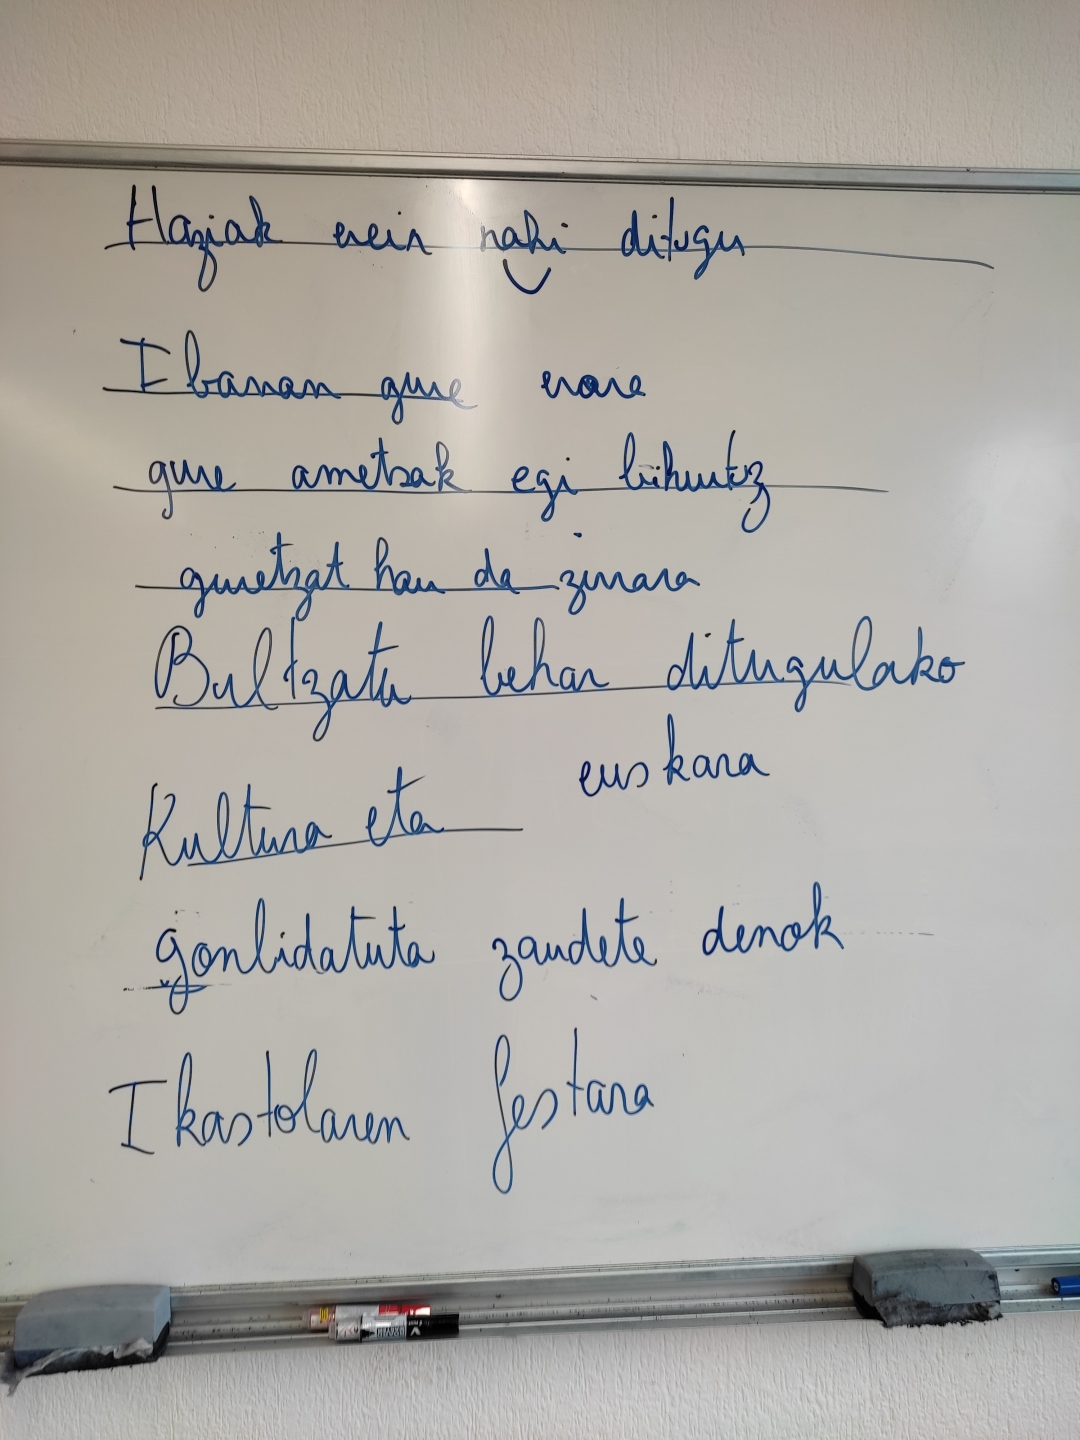 Haziak erein nahi ditugu
Ibarran gure erara
gure ametsak egi bihurtuz
guretzat hau da zinara
Bultzatu behar ditugulako
Kultura eta euskara
gonbidatuta zaudete denok
Ikastolaren festara